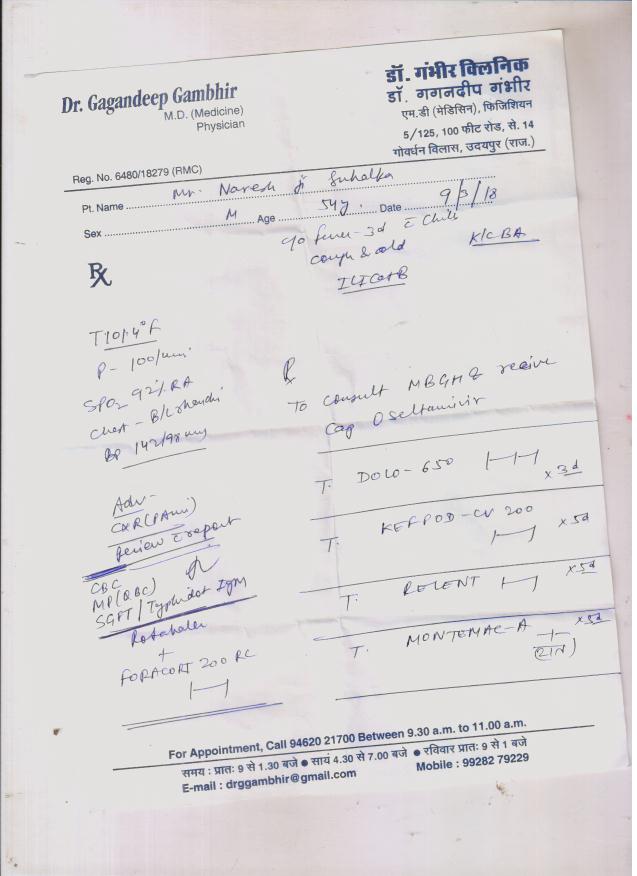 Dr. Gagandeep Gambhir
M.D. (Medicine)
Physician
डॉ. गंभीर क्लिनिक
डॉ. गगनदीप गंभीर
एम.डी (मेडिसिन), फिजिशियन
5/125, 100 फीट रोड, से. 14
गोवर्धन विलास, उदयपुर (राज.)
Reg. No. 6480/18279 (RMC)
Pt. Name Mr. Naresh Ji Suhalka
Sex M Age 54y. Date 9/3/18
c/o fever - 3d c̄ Chill
cough & cold
K/C BA
Rx
T 101.4°F
P - 100/min
SPO2 92% RA
Chest - B/L rhonchi
BP 142/98 mmg
Rx
To consult MBGH & receive
Cap Oseltamivir
T. DOLO-650 x 3d
T. KEFPOD-CV 200 x 5d
T. RELENT x 5d
T. MONTEMAC-A x 5d
(रात)
Adv-
CXR (PA view)
Review c̄ report
CBC
MP (QBC)
SGPT / Typhidot IgM
Rotahaler
+
FORACORT 200 RC
For Appointment, Call 94620 21700 Between 9.30 a.m. to 11.00 a.m.
समय : प्रातः 9 से 1.30 बजे ● सायं 4.30 से 7.00 बजे ● रविवार प्रातः 9 से 1 बजे
E-mail : drggambhir@gmail.com Mobile : 99282 79229